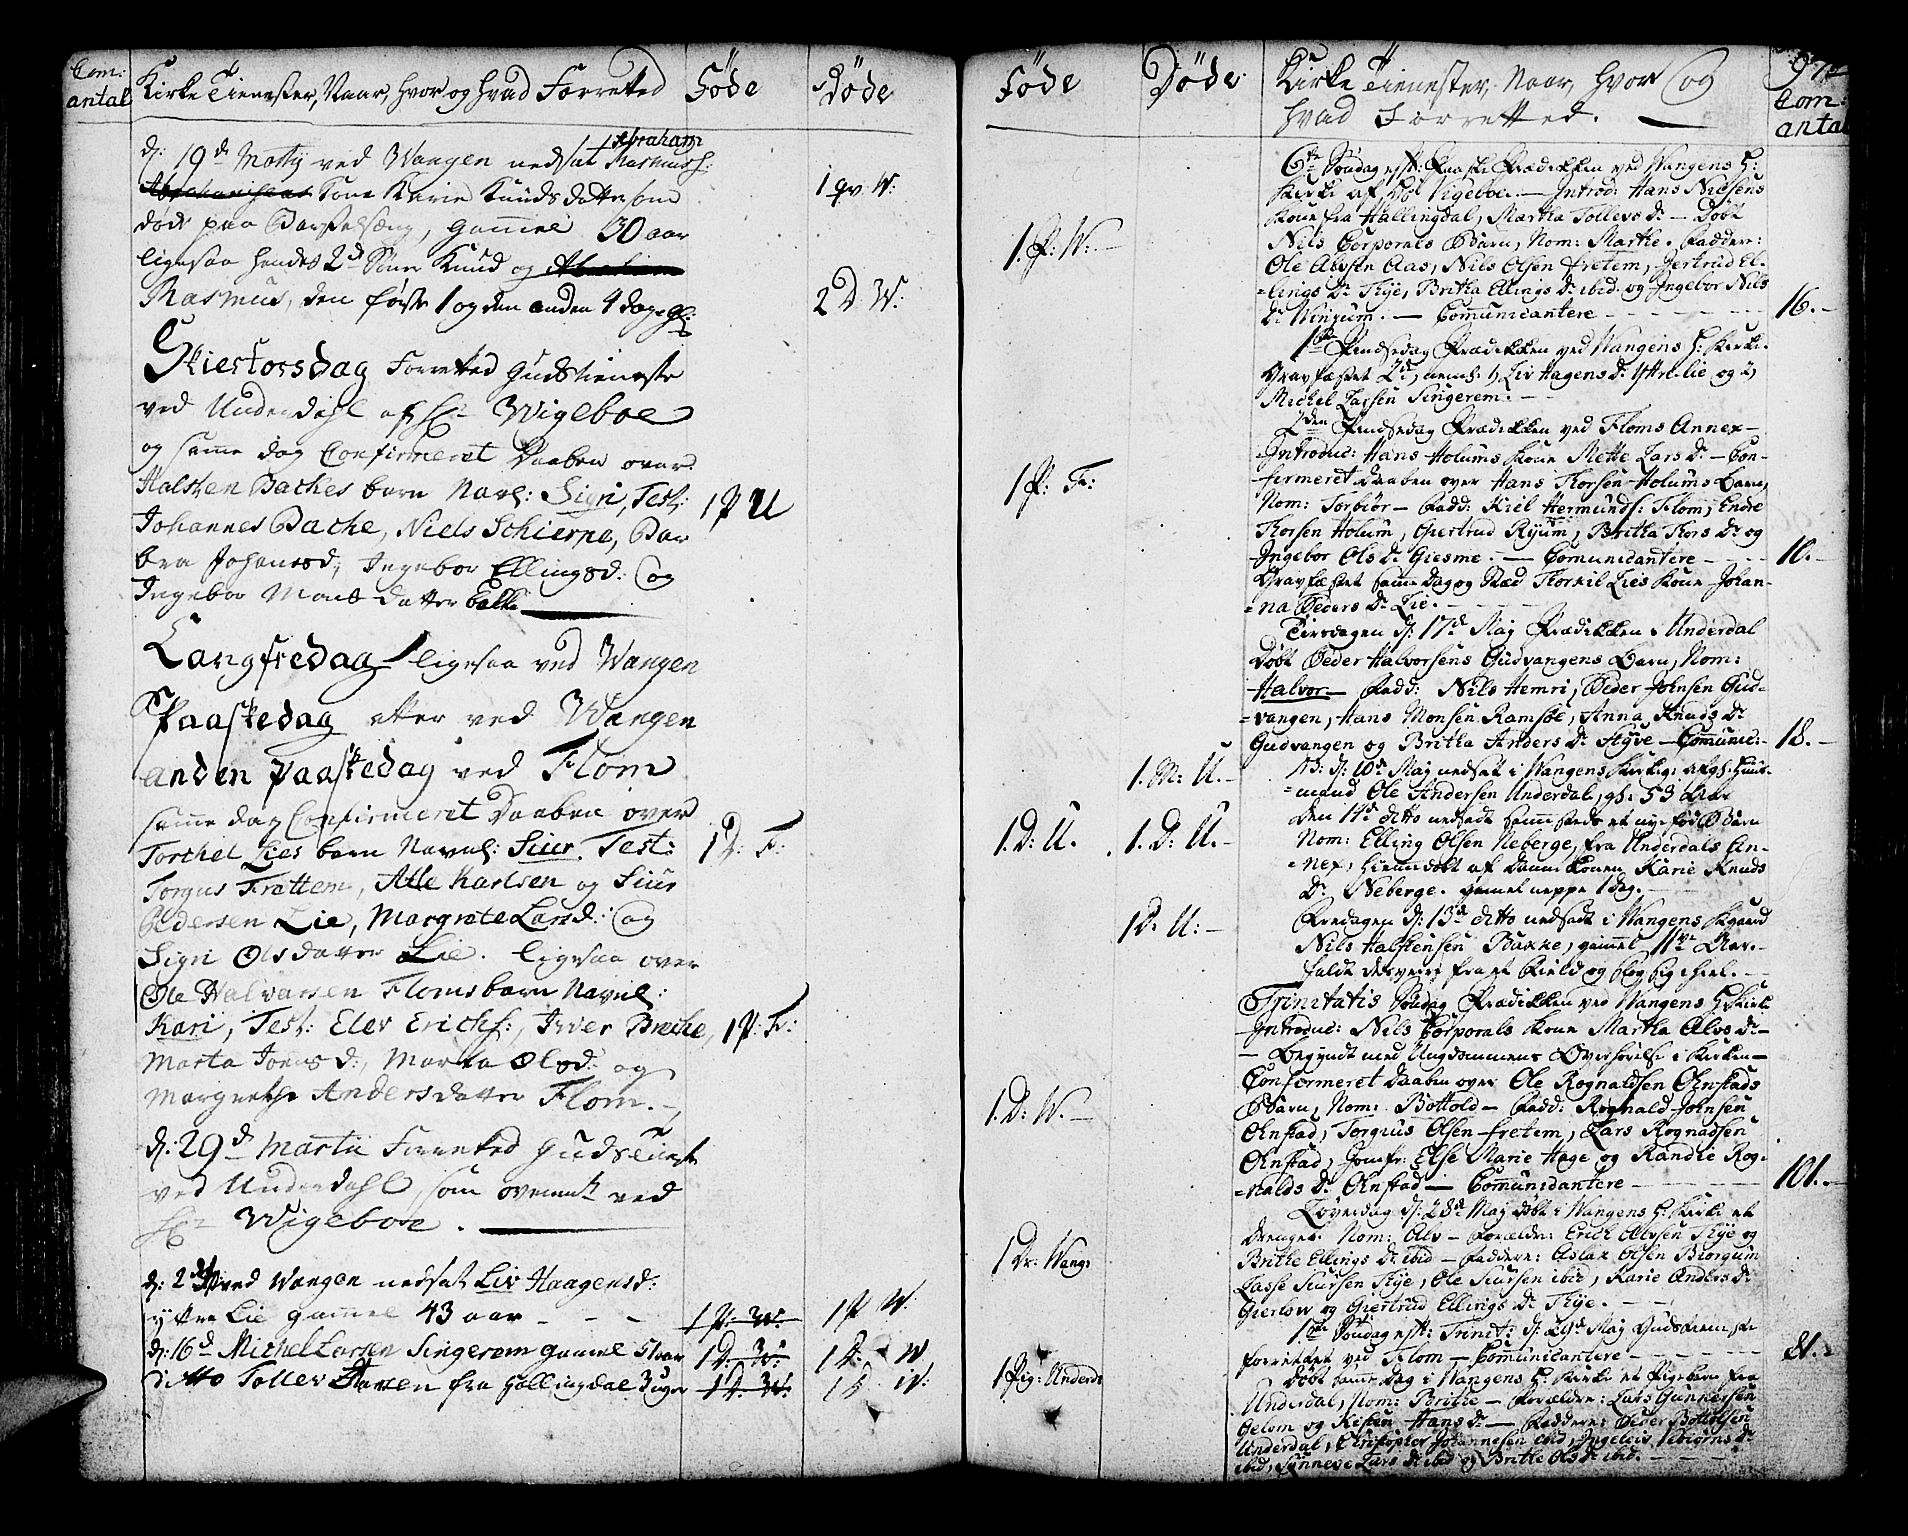 Com:
antal
Kirke Tienester, Naar, hvor og hvad Forretted
Föde
Döde
Abraham
d: 19d Martij ved Wangen nedsat Rasmus
Kone Karie Knuds datter som
döde paa Barselseng, gammel 30 aar
1 qv. W:
ligesaa hendes 2d Sönn Knud og
Rasmus, den förste 1 og den anden 4 dage gl:
2 D W:
Skiertorsdag Forretted Gudstieneste
ved Underdahl af Hr Wigeboe
og samme dag Confirmeret Daaben over
Halsten Baches barn Navl: Sigri, Test:
1 P U
Johannes Bache, Niels Schierpe, Bar
bra Johansd:, Ingebor Ellingsd: og
Ingebor Mons datter Bakke
Langfredag ligesaa ved Wangen
Paaskedag atter ved Wangen
anden Paaskedag ved Flom
samme dag Confirmeret Daaben over
Torchel Lies barn Navnl: Siur. Test:
1 D: F:
Torgus Frettem, Atle Karlsen og Siur
Pedersen Lie, Margrete Larsd: og
Sigri Olsdatter Lie. ligesaa over
Ole Halvarsen Floms barn Navnl:
Kari, Test: Elev Erichs:, Iver Breche,
1 P: F:
Marta Jonsd:, Marta Olsd: og
Margrethe Andersdatter Flom.
d: 29d Martii Forretted Gudstienest
ved Underdahl, som ovenmelt ved
Hr Wigeboe.
d: 2d ved Wangen nedsat Liv Haagensd:
yttre Lie gamel 43 aar
1 P: W:
1 P W:
d: 16d Michel Larsen Singerem gamel 51 aar
1 D: W:
1 D: W
ditto Tollev Larsen fra Hallingdal 3 uger
1 D: W:
1 D W:
Föde
Döde
Kirke Tienester, Naar, Hvor og
hvad Forretted.
97
Com:
antal
6te Söndag efter Paaske Prædikken ved Wangens H:
Kirke af Hr Vigeboe. Introd: Hans Nielsens
Kone fra Hallingdal, Martha Tollevs Dr — Döbt
1. P: W:
Nils Corporals Barn, Nom: Marthe. Faddere:
Ole Alvsen Aas, Nils Olsen Fretem, Gertrud El-
=lings Dr Skye, Britha Ellings Dr ibid. og Ingebor Nils
Dr Winjum. — Comunicantere
16.
1ste Pindsedag Prædikken ved Wangens H: Kirke.
Gravfæstet 2de, neml: 1) Liv Hagens Dr Ytre-lie og 2)
Michel Larsen Singerem.
2den Pindsedag Prædikken ved Floms Annex —
Introduc: Hans Holums Kone Mette Lars Dr — Con-
1 P: F:
firmeret daaben over Hans Thorsen Holums Barn,
Nom: Torbiör — Fadd: Kiel Hermunds: Flom, Endre
Thorsen Holum, Giertrud Ryum, Britha Thors Dr og
Ingebor Ols Dr Giesme. — Comunicantere
10.
Gravfæstet samme Dag og Stæd Thorkil Lies Kone Johan-
=na Peders Dr Lie.
Tirsdagen d: 17d May Prædikken i Underdal
Döbt Peder Halvorsens Gudvangens Barn, Nom:
Halvor — Fadd: Nils Hemri, Peder Johnsen Gud-
=vangen, Hans Monsen Ramsöe, Anna Knuds Dr
Gudvangen og Britha Anders Dr Styve — Comunic:
18.
NB: d: 10d May nedsat i Wangens Kirkeg: afgl: Huus-
1. M: U.
=mand Ole Andersen Underdal, gl: 53 Aar
den 11d ditto nedsadt samme steds et nyefödt Barn
1 D: U.
1. D: U.
Nom: Elling Olsen Neberge, fra Underdals An-
=nex, hiemmedöbt af Dannekonen Karie Knuds
Dr Neberge. gamel neppe 1 dag.
Fredagen d: 13d ditto nedsadt i Wangens Kgaard
1 D: U:
Nils Halstensen Bakke, gammel 11ve Aar.
faldt desverre fra et Field og slog sig ihiel.
Trinitatis Söndag Prædikken ved Wangens H: Kirke
Introduc: Nils Corporals Kone Martha Alvs Dr —
— Begyndt med Ungdommens Overhörelse i Kirken —
Confermeret daaben over Ole Rognaldsen Ohnstads
1. D: W.
Barn, Nom: Bottold — Fadd: Rognald Johnsen
Ohnstad, Torgius Olsen Fretem, Lars Rognadsen
Ohnstad, Jomfr: Else Marie Hage og Randie Rog-
=nalds Dr Ohnstad — Comunicantere
101.
Löverdag d: 28d May döbt i Wangens H: Kirke et
1 Dr: Wang:
Drenge. Nom: Alv — Forældre: Erich Alvsen Skye og
Britha Ellings Dr ibid — Faddere: Aslak Olsen Biorgum
Lasse Siursen Skye, Ole Siursen ibid, Karie Anders Dr
Gierlow og Giertrud Ellings Dr Skye.
1ste Söndag eft: Trinit: d: 29d May Gudstienesten
forrettet ved Flom — Comunicantere
21.
1 Pig: Underd:
Döbt samme Dag i Wangens H: Kirke et Pigebarn fra
Underdal, Nom: Brithe — Forældre: Lars Gunnersen
Gelom og Kisten Hans Dr — Faddere: Peder Bottolsen
Underdal, Christopher Johannesen ibid, Ingeleiv Torbiörns Dr
ibid, Synneve Lars Dr ibid og Britte Ols Dr ibid.